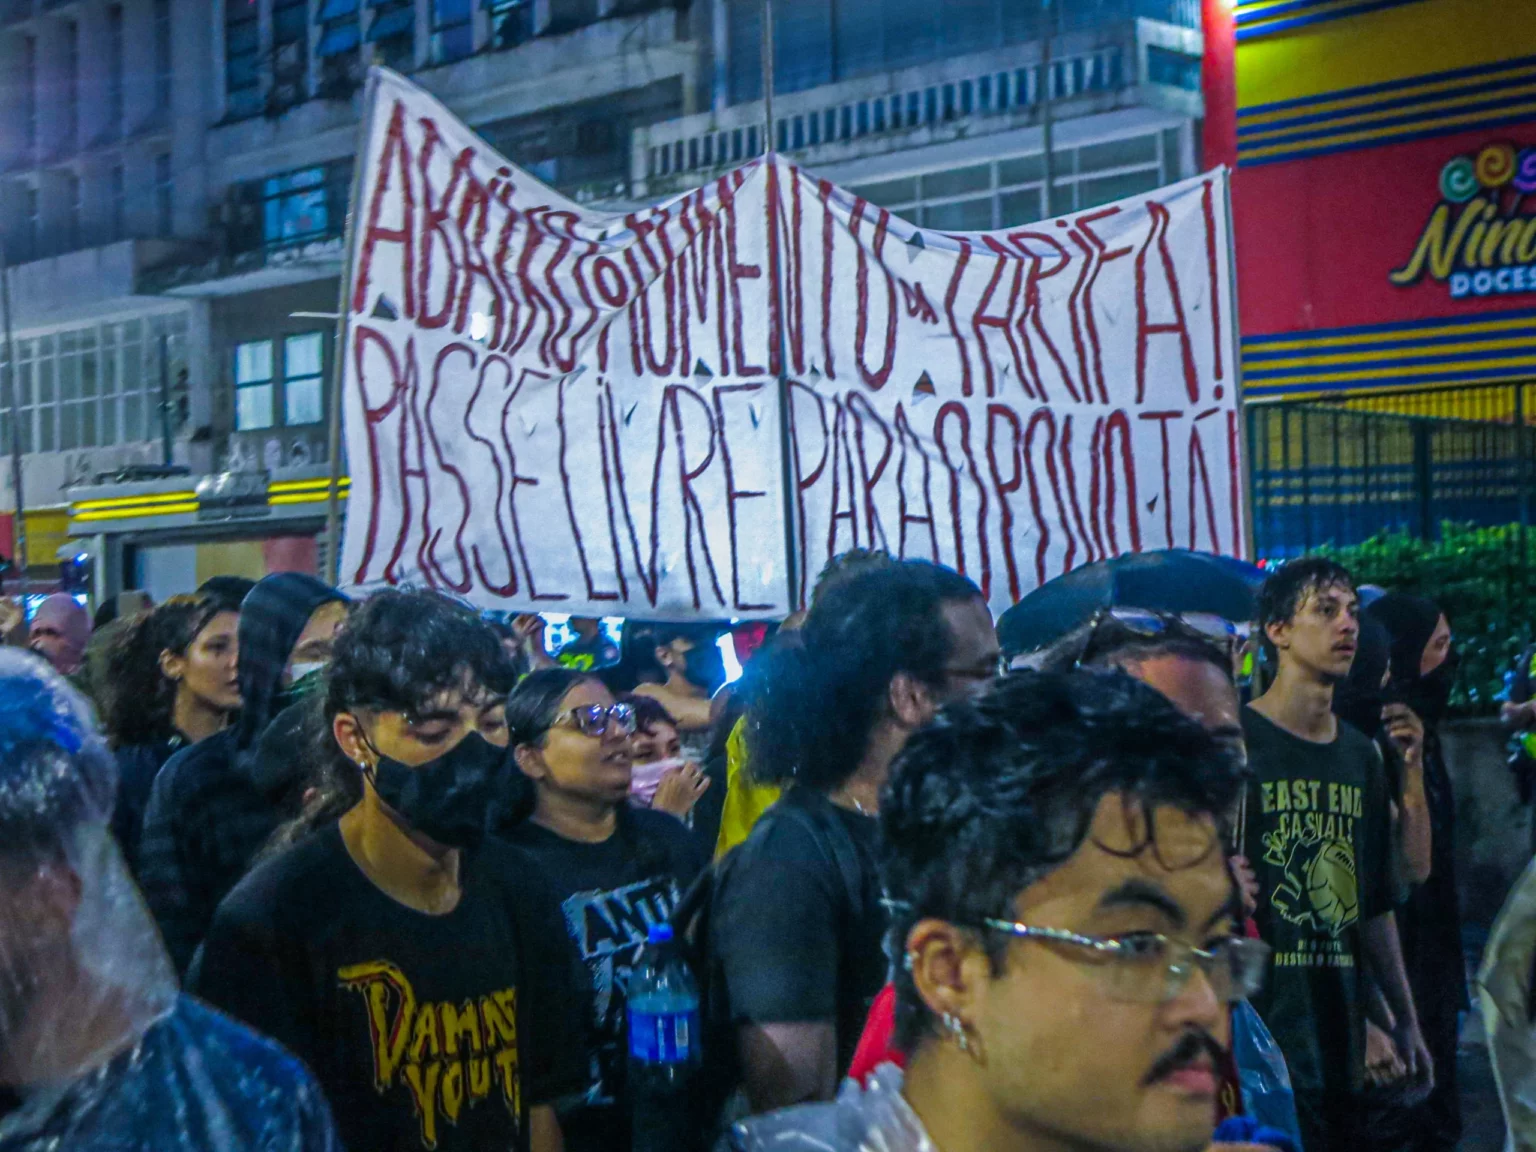 ABAIXO O AUMENTO DA TARIFA!
PASSE LIVRE PARA O POVO JÁ!
DOCES
DAMN
YOUT
ANTI
EAST END
CASUALS